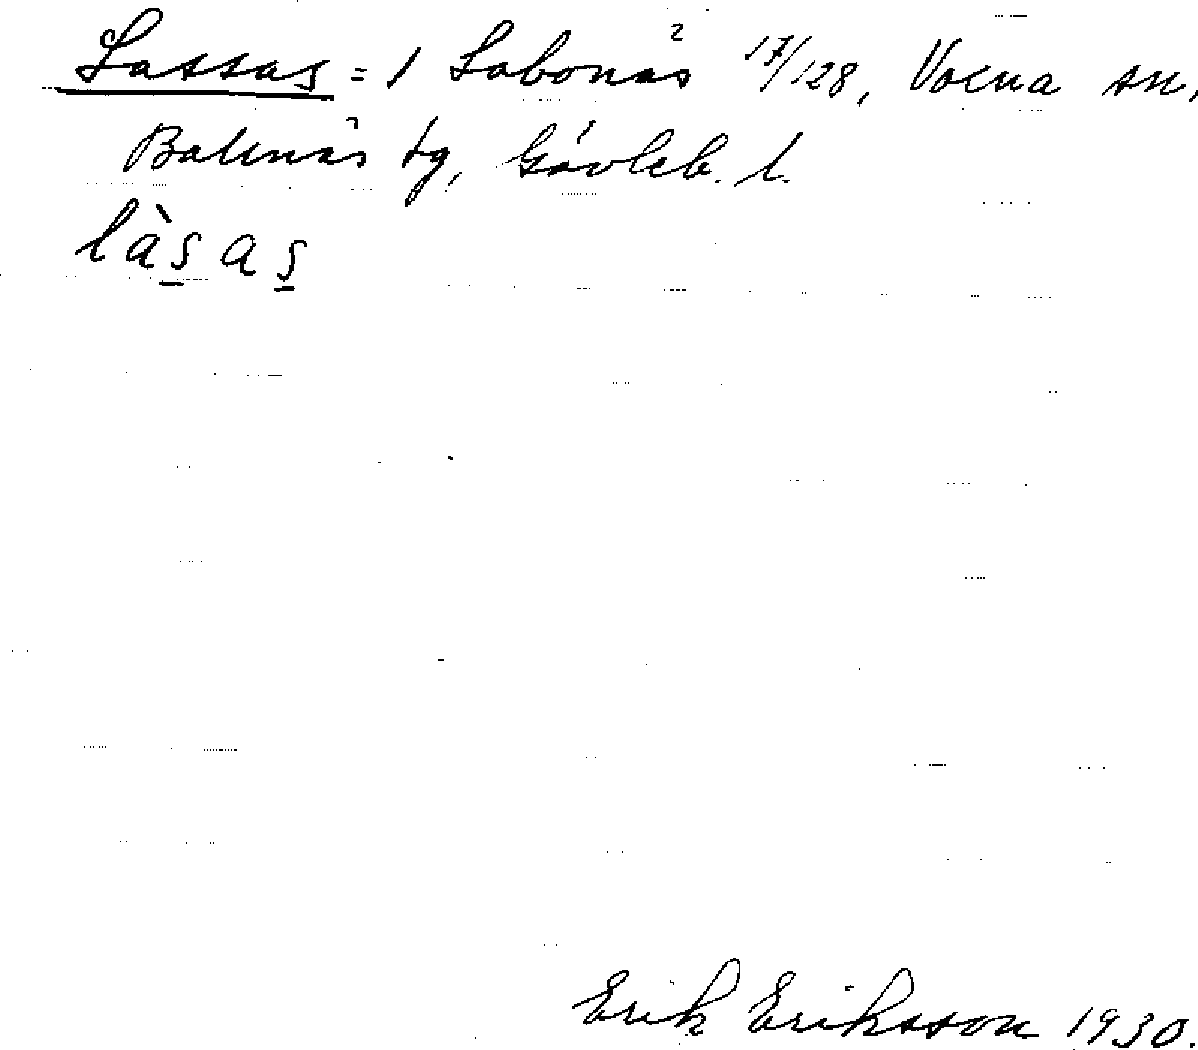 Lassas = 1 Sabonäs 17/128, Voxna sn,
Bollnäs tg, Gävleb. l.
làs̠as̠
Erik Eriksson 1930.